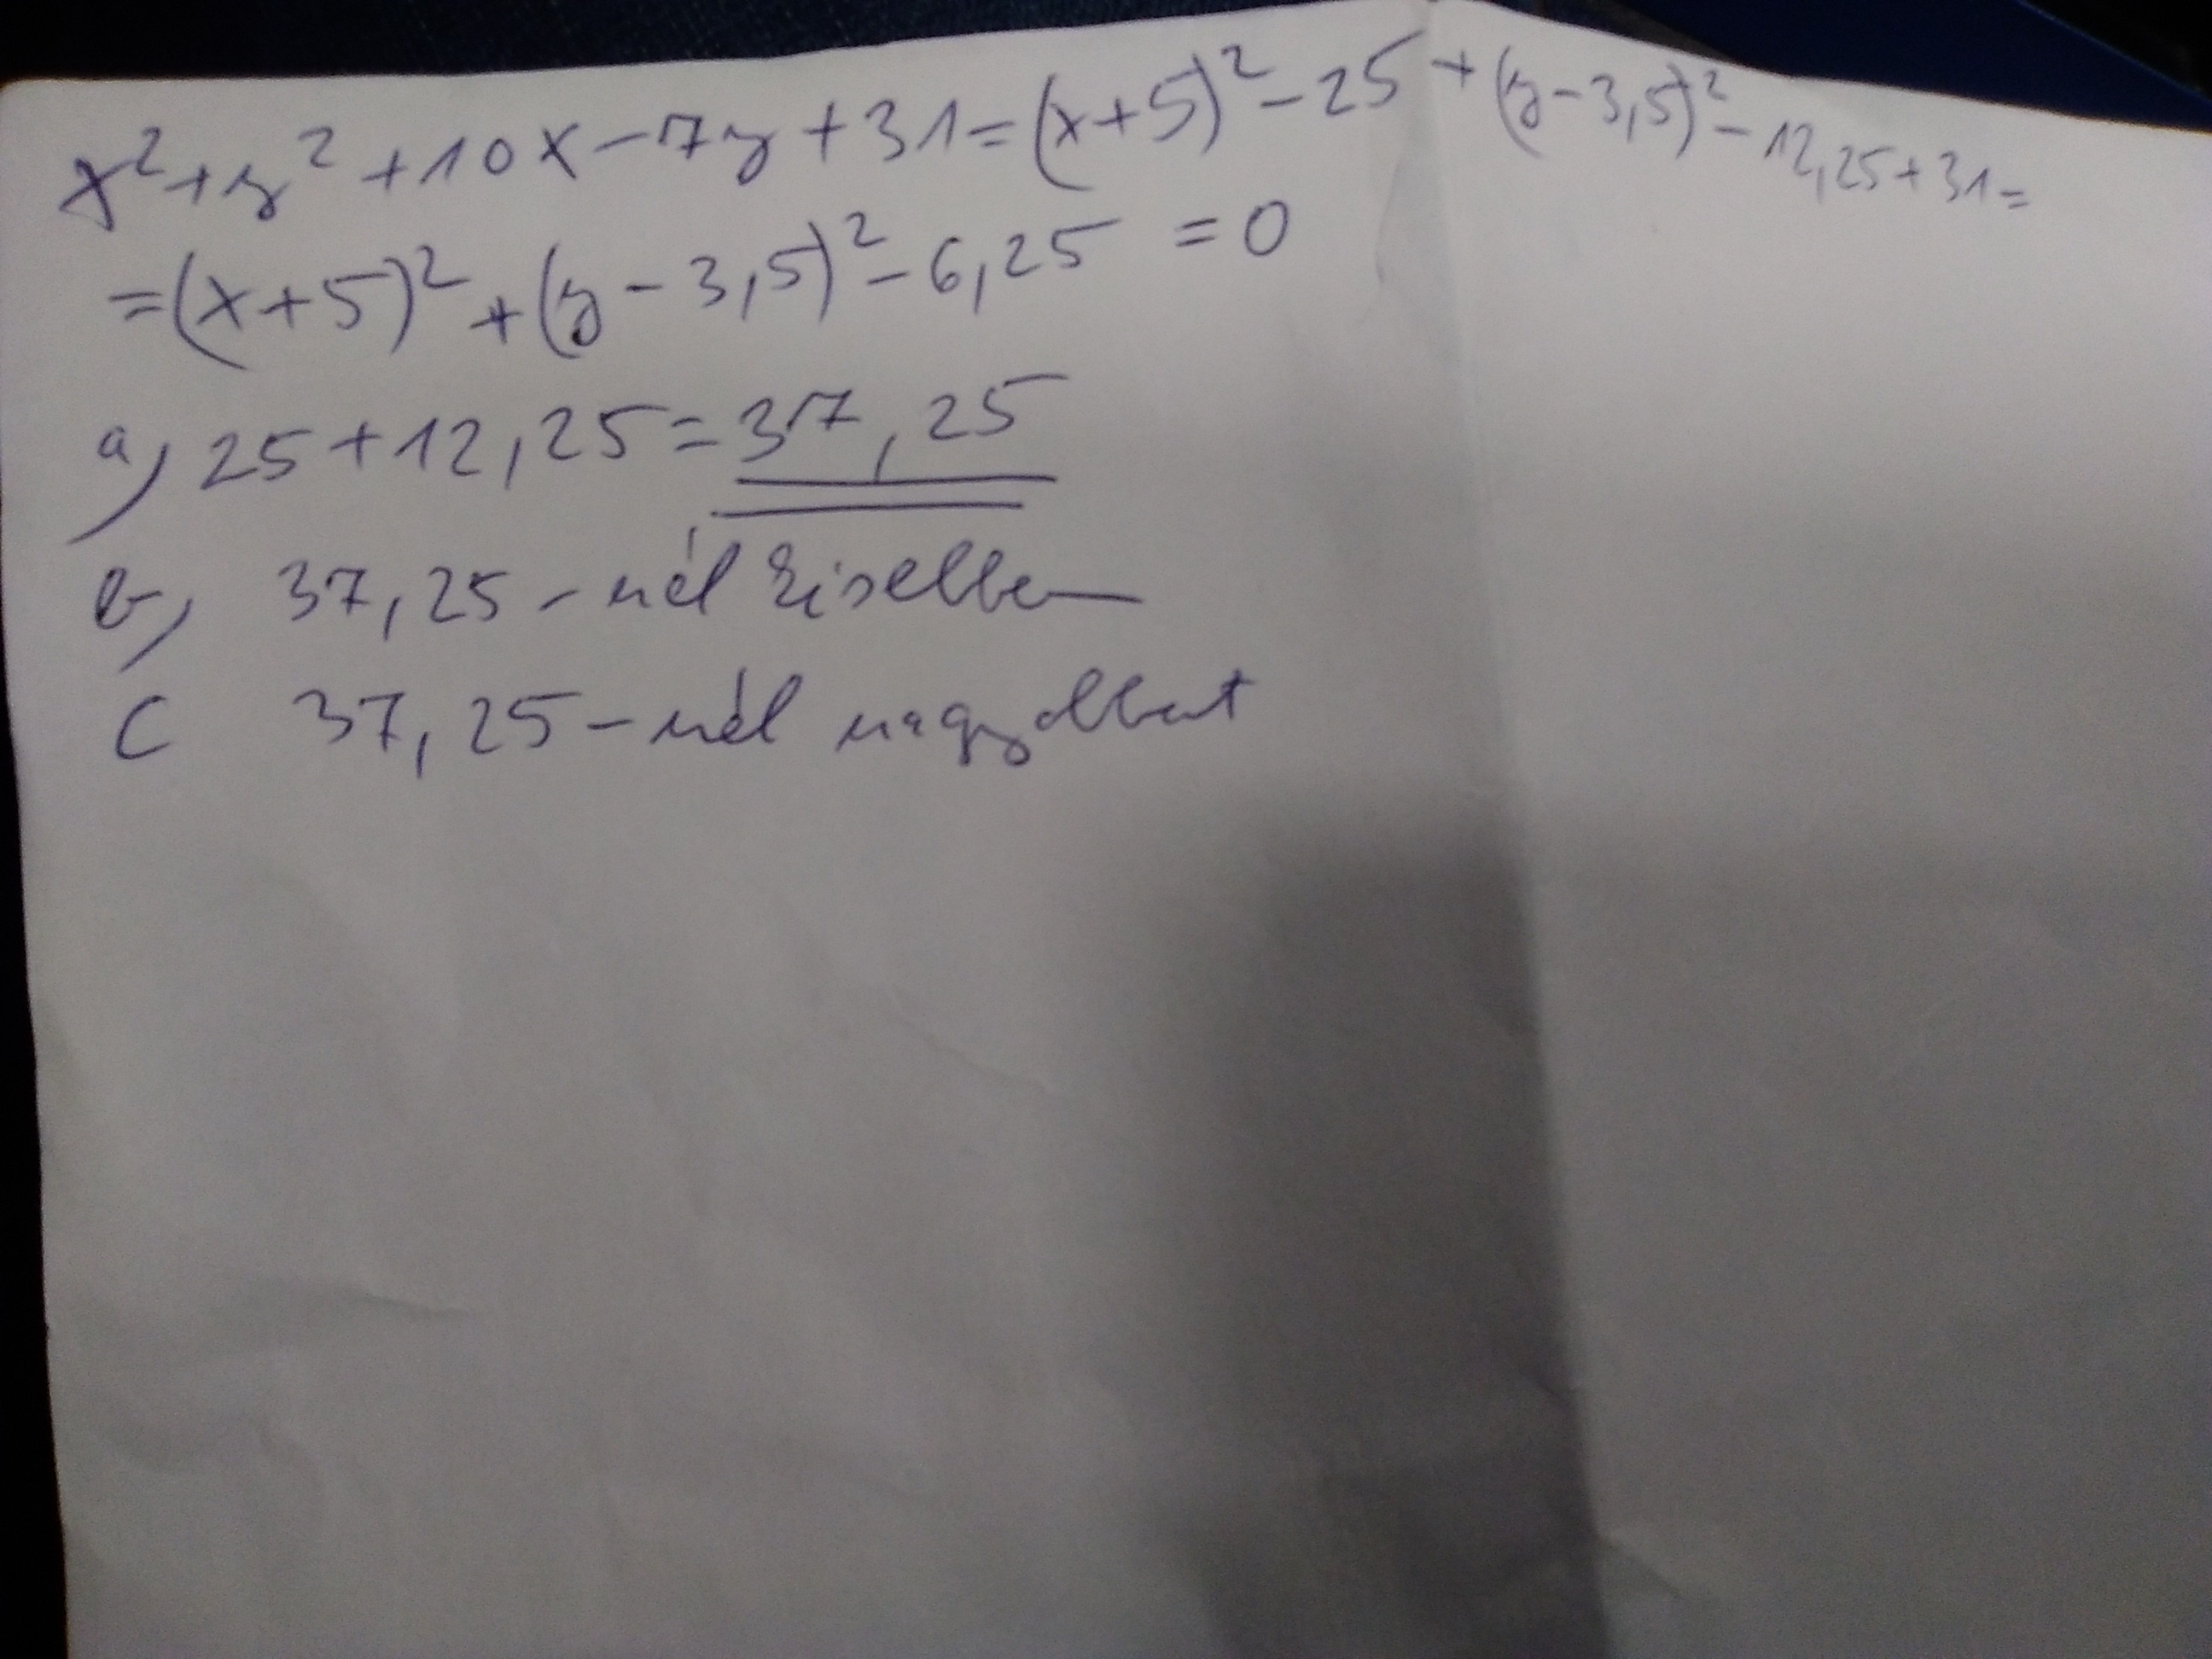 x²+y²+10x-7y+31=(x+5)²-25+(y-3,5)²-12,25+31=
=(x+5)²+(y-3,5)²-6,25 =0
a) 25+12,25=37,25
b) 37,25-nél kisebben
C 37,25-nél nagyobbat